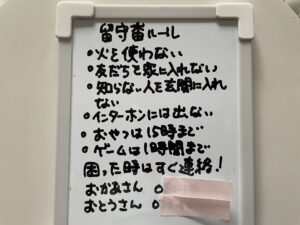 留守番ルール
・火を使わない
・友だちを家に入れない
・知らない人を玄関に入れ
ない
・インターホンには出ない
・おやつは15時まで
・ゲームは1時間まで
困った時はすぐ連絡!
おかあさん 0
おとうさん 0